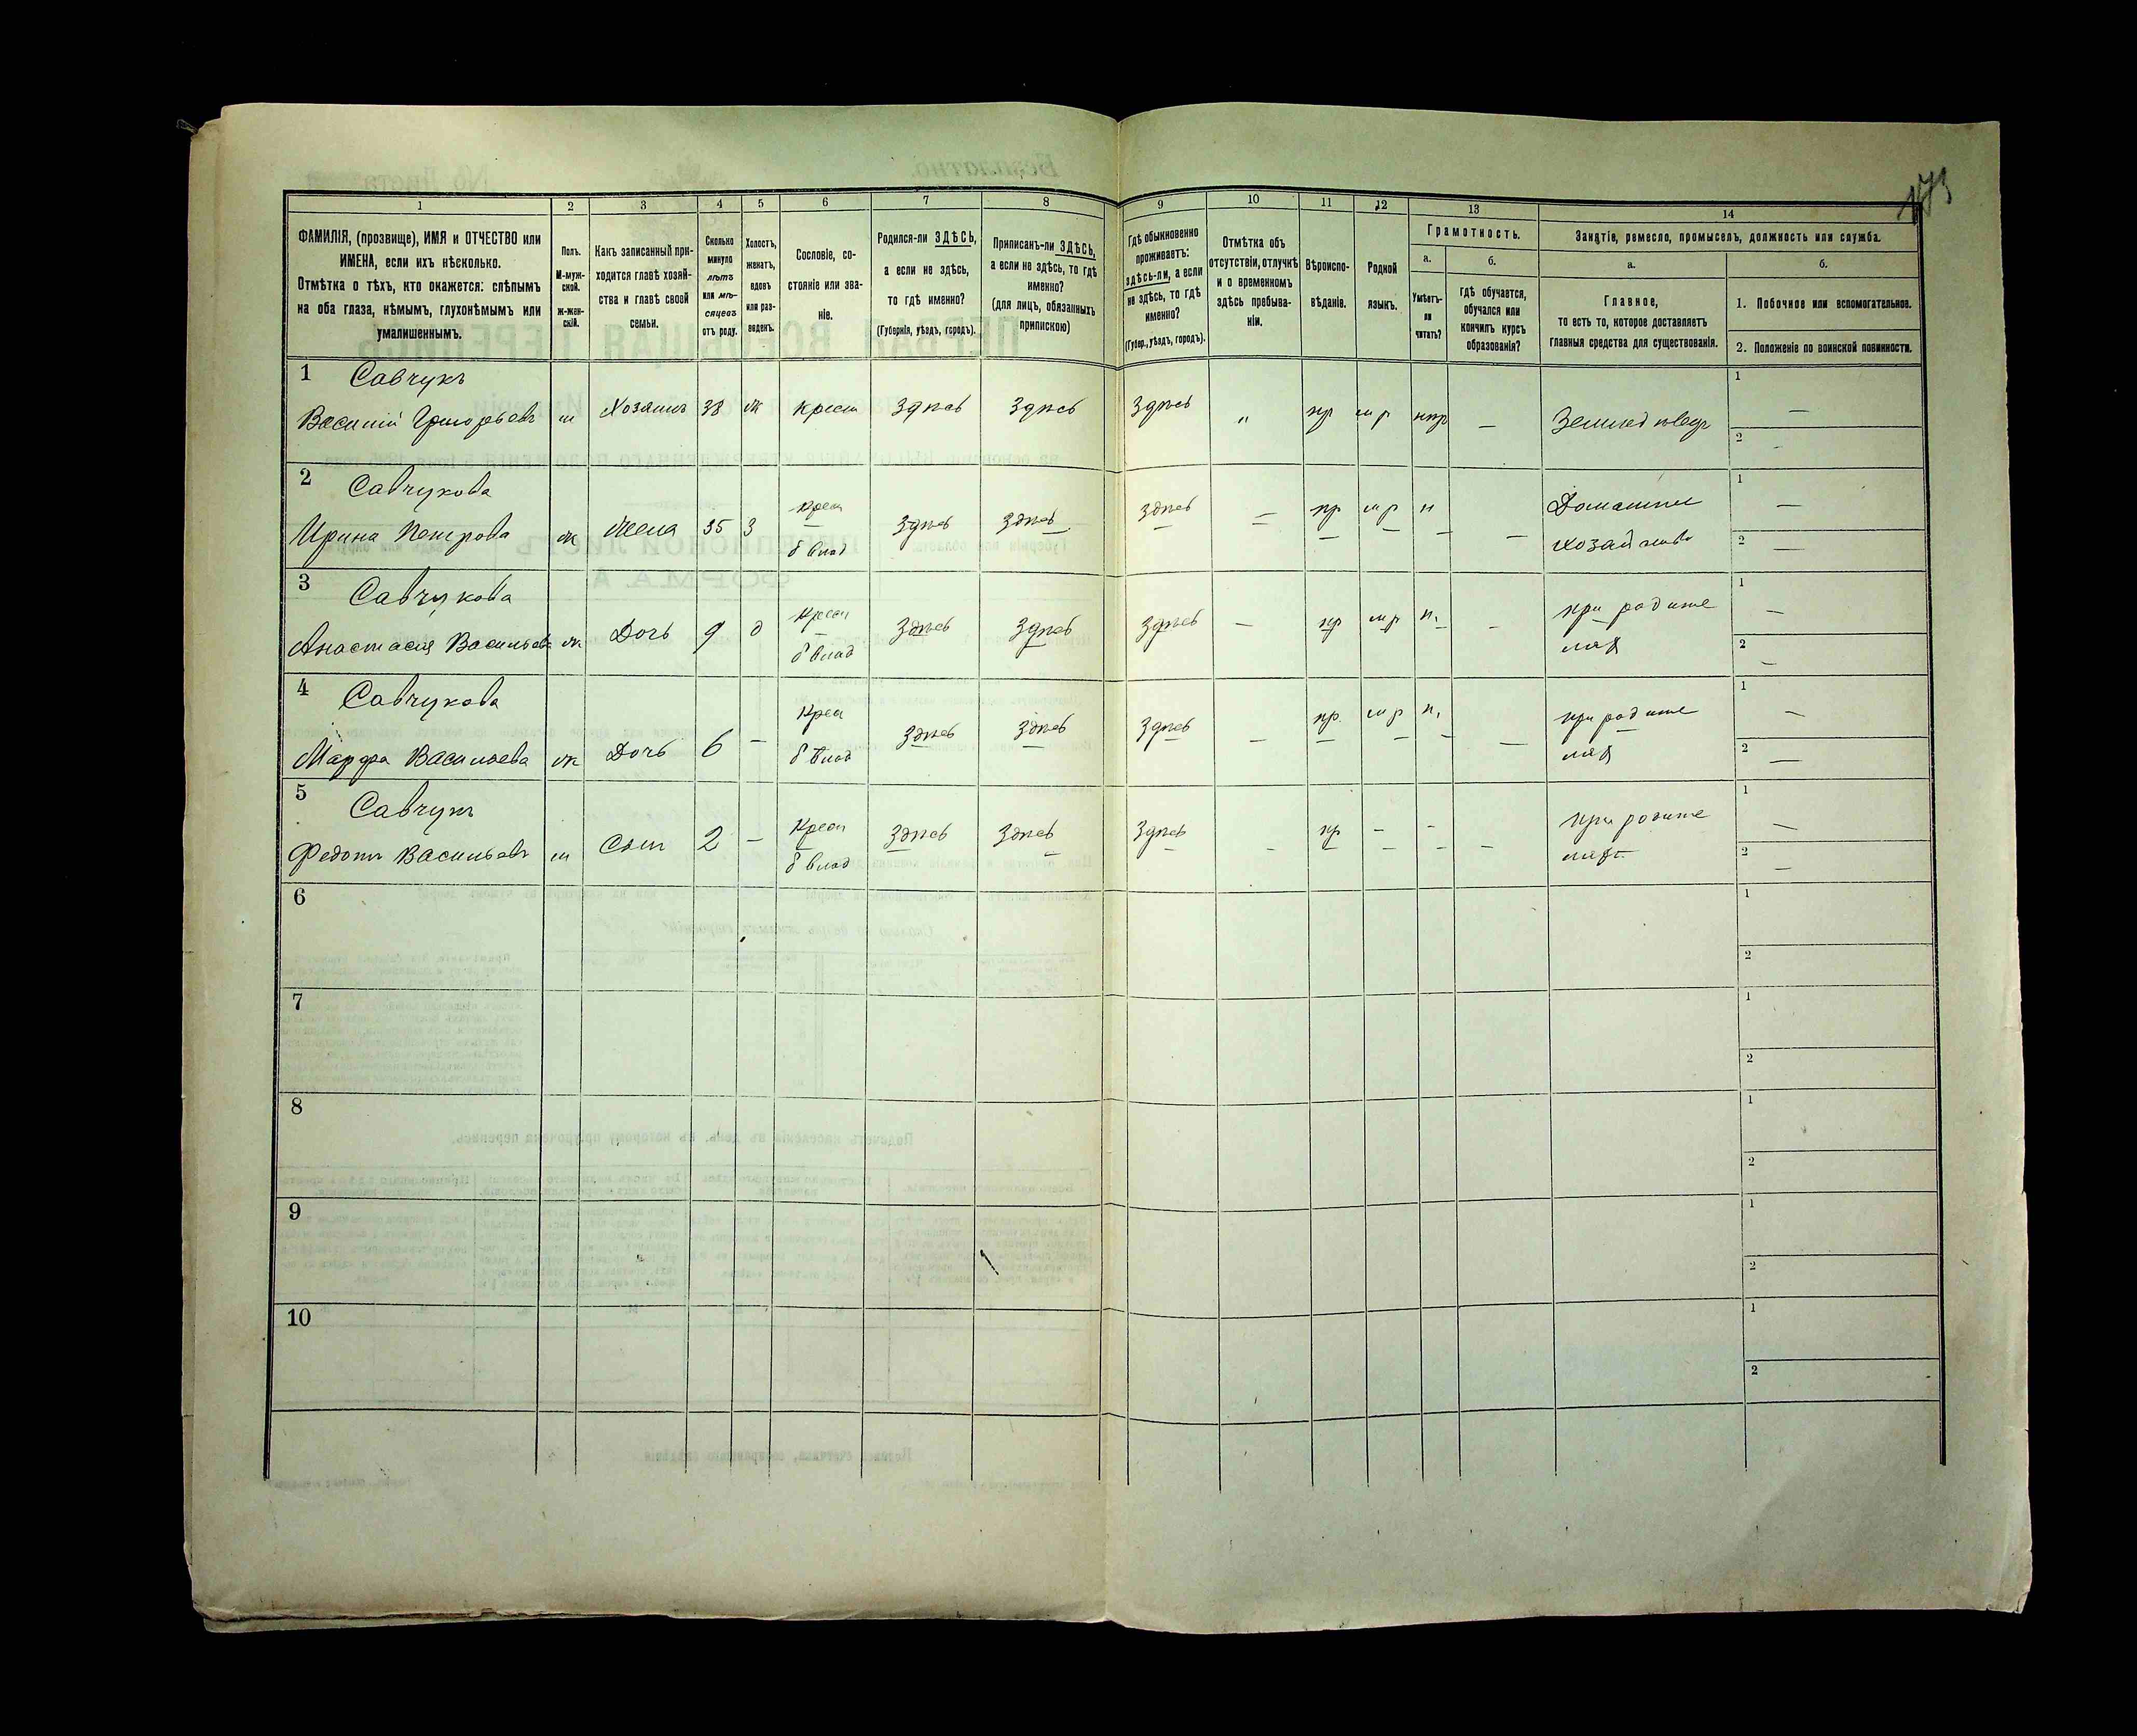 173
1 2 3 4 5 6 7 8 9 10 11 12 13 14
ФАМИЛІЯ, (прозвище), ИМЯ и ОТЧЕСТВО или
ИМЕНА, если ихъ нѣсколько.
Отмѣтка о тѣхъ, кто окажется: слѣпымъ
на оба глаза, нѣмымъ, глухонѣмымъ или
умалишеннымъ.
Полъ.
М-муж-
ской.
ж-жен-
скій.
Какъ записанный при-
ходится главѣ хозяй-
ства и главѣ своей
семьи.
Сколько
минуло
лѣтъ
или мѣ-
сяцевъ
отъ роду.
Холостъ,
женатъ,
вдовъ
или раз-
веденъ.
Сословіе, со-
стояніе или зва-
ніе.
Родился-ли ЗДѢСЬ,
а если не здѣсь,
то гдѣ именно?
(Губернія, уѣздъ, городъ).
Приписанъ-ли ЗДѢСЬ,
а если не здѣсь, то гдѣ
именно?
(для лицъ, обязанныхъ
припискою)
Гдѣ обыкновенно
проживаетъ:
здѣсь-ли, а если
не здѣсь, то гдѣ
именно?
(Губер., уѣздъ, городъ).
Отмѣтка объ
отсутствіи, отлучкѣ
и о временномъ
здѣсь пребыва-
ніи.
Вѣроиспо-
вѣданіе.
Родной
языкъ.
Грамотность.
а.
Умѣетъ-
ли
читать?
б.
Гдѣ обучается,
обучался или
кончилъ курсъ
образованія?
Занятіе, ремесло, промыселъ, должность или служба.
а.
Главное,
то есть то, которое доставляетъ
главныя средства для существованія.
б.
1. Побочное или вспомогательное.
2. Положеніе по воинской повинности.
1 Савчукъ
Василій Григорьевъ м Хозяинъ 38 ж крест Здѣсь Здѣсь Здѣсь " пр мр — Земледѣлецъ
1 —
2 -
2 Савчукова
Ирина Петрова ж Жена 35 З крест Здѣсь Здѣсь здѣсь — пр мр н — Домашнее
б влад хозяйство
1 —
2 —
3 Савчукова
Анастасія Васильева ж Дочь 9 д Крест Здѣсь Здѣсь Здѣсь — пр мр н. - при родите
б влад ляхъ
1 —
2 —
4 Савчукова
Марфа Васильева ж Дочь 6 — Крест Здѣсь Здѣсь Здѣсь — пр. мр н. — при родите
б влад ляхъ
1 —
2 —
5 Савчукъ
Федотъ Васильевъ м Сынъ 2 — Крест Здѣсь Здѣсь Здѣсь - пр - - - при родите
б влад ляхъ
1 —
2 —
6
1
2
7
1
2
8
1
2
9
1
2
10
1
2